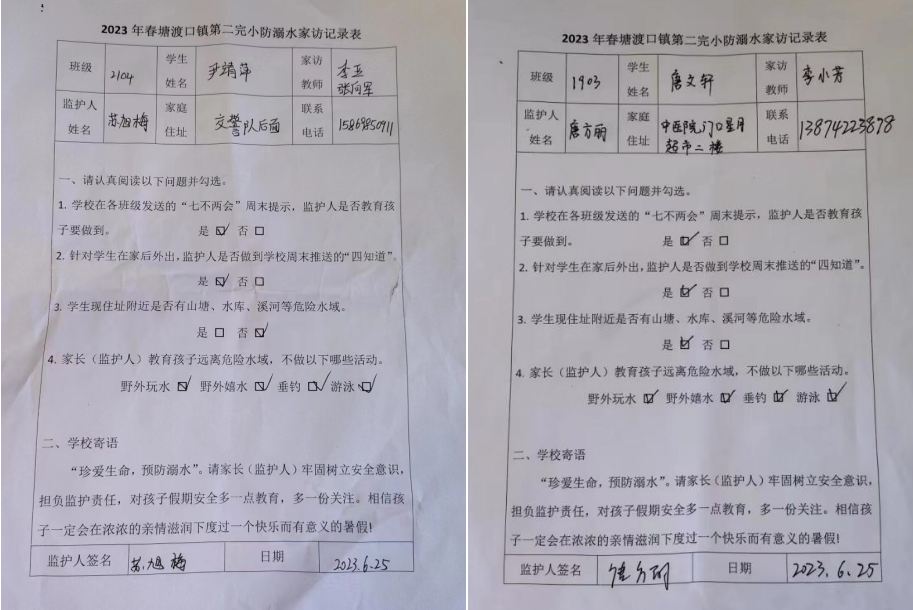 2023 年春塘渡口镇第二完小防溺水家访记录表
班级 2104 学生姓名 尹靖萍 家访教师 李亚
张向军
监护人姓名 苏旭梅 家庭住址 交警队后面 联系电话 15869850911
一、请认真阅读以下问题并勾选。
1. 学校在各班级发送的“七不两会”周末提示，监护人是否教育孩
子要做到。 是 ☑ 否 □
2. 针对学生在家后外出，监护人是否做到学校周末推送的“四知道”。
是 ☑ 否 □
3. 学生现住址附近是否有山塘、水库、溪河等危险水域。
是 □ 否 ☑
4. 家长（监护人）教育孩子远离危险水域，不做以下哪些活动。
野外玩水 ☑ 野外嬉水 ☑ 垂钓 ☑ 游泳 ☑
二、学校寄语
“珍爱生命，预防溺水”。请家长（监护人）牢固树立安全意识，
担负监护责任，对孩子假期安全多一点教育，多一份关注。相信孩
子一定会在浓浓的亲情滋润下度过一个快乐而有意义的暑假!
监护人签名 苏旭梅 日期 2023.6.25
2023 年春塘渡口镇第二完小防溺水家访记录表
班级 1903 学生姓名 唐文轩 家访教师 李小芳
监护人姓名 唐方丽 家庭住址 中医院门口星月
超市二楼 联系电话 13874223878
一、请认真阅读以下问题并勾选。
1. 学校在各班级发送的“七不两会”周末提示，监护人是否教育孩
子要做到。 是 ☑ 否 □
2. 针对学生在家后外出，监护人是否做到学校周末推送的“四知道”。
是 ☑ 否 □
3. 学生现住址附近是否有山塘、水库、溪河等危险水域。
是 ☑ 否 □
4. 家长（监护人）教育孩子远离危险水域，不做以下哪些活动。
野外玩水 ☑ 野外嬉水 ☑ 垂钓 ☑ 游泳 ☑
二、学校寄语
“珍爱生命，预防溺水”。请家长（监护人）牢固树立安全意识，
担负监护责任，对孩子假期安全多一点教育，多一份关注。相信孩
子一定会在浓浓的亲情滋润下度过一个快乐而有意义的暑假!
监护人签名 日期 2023.6.25